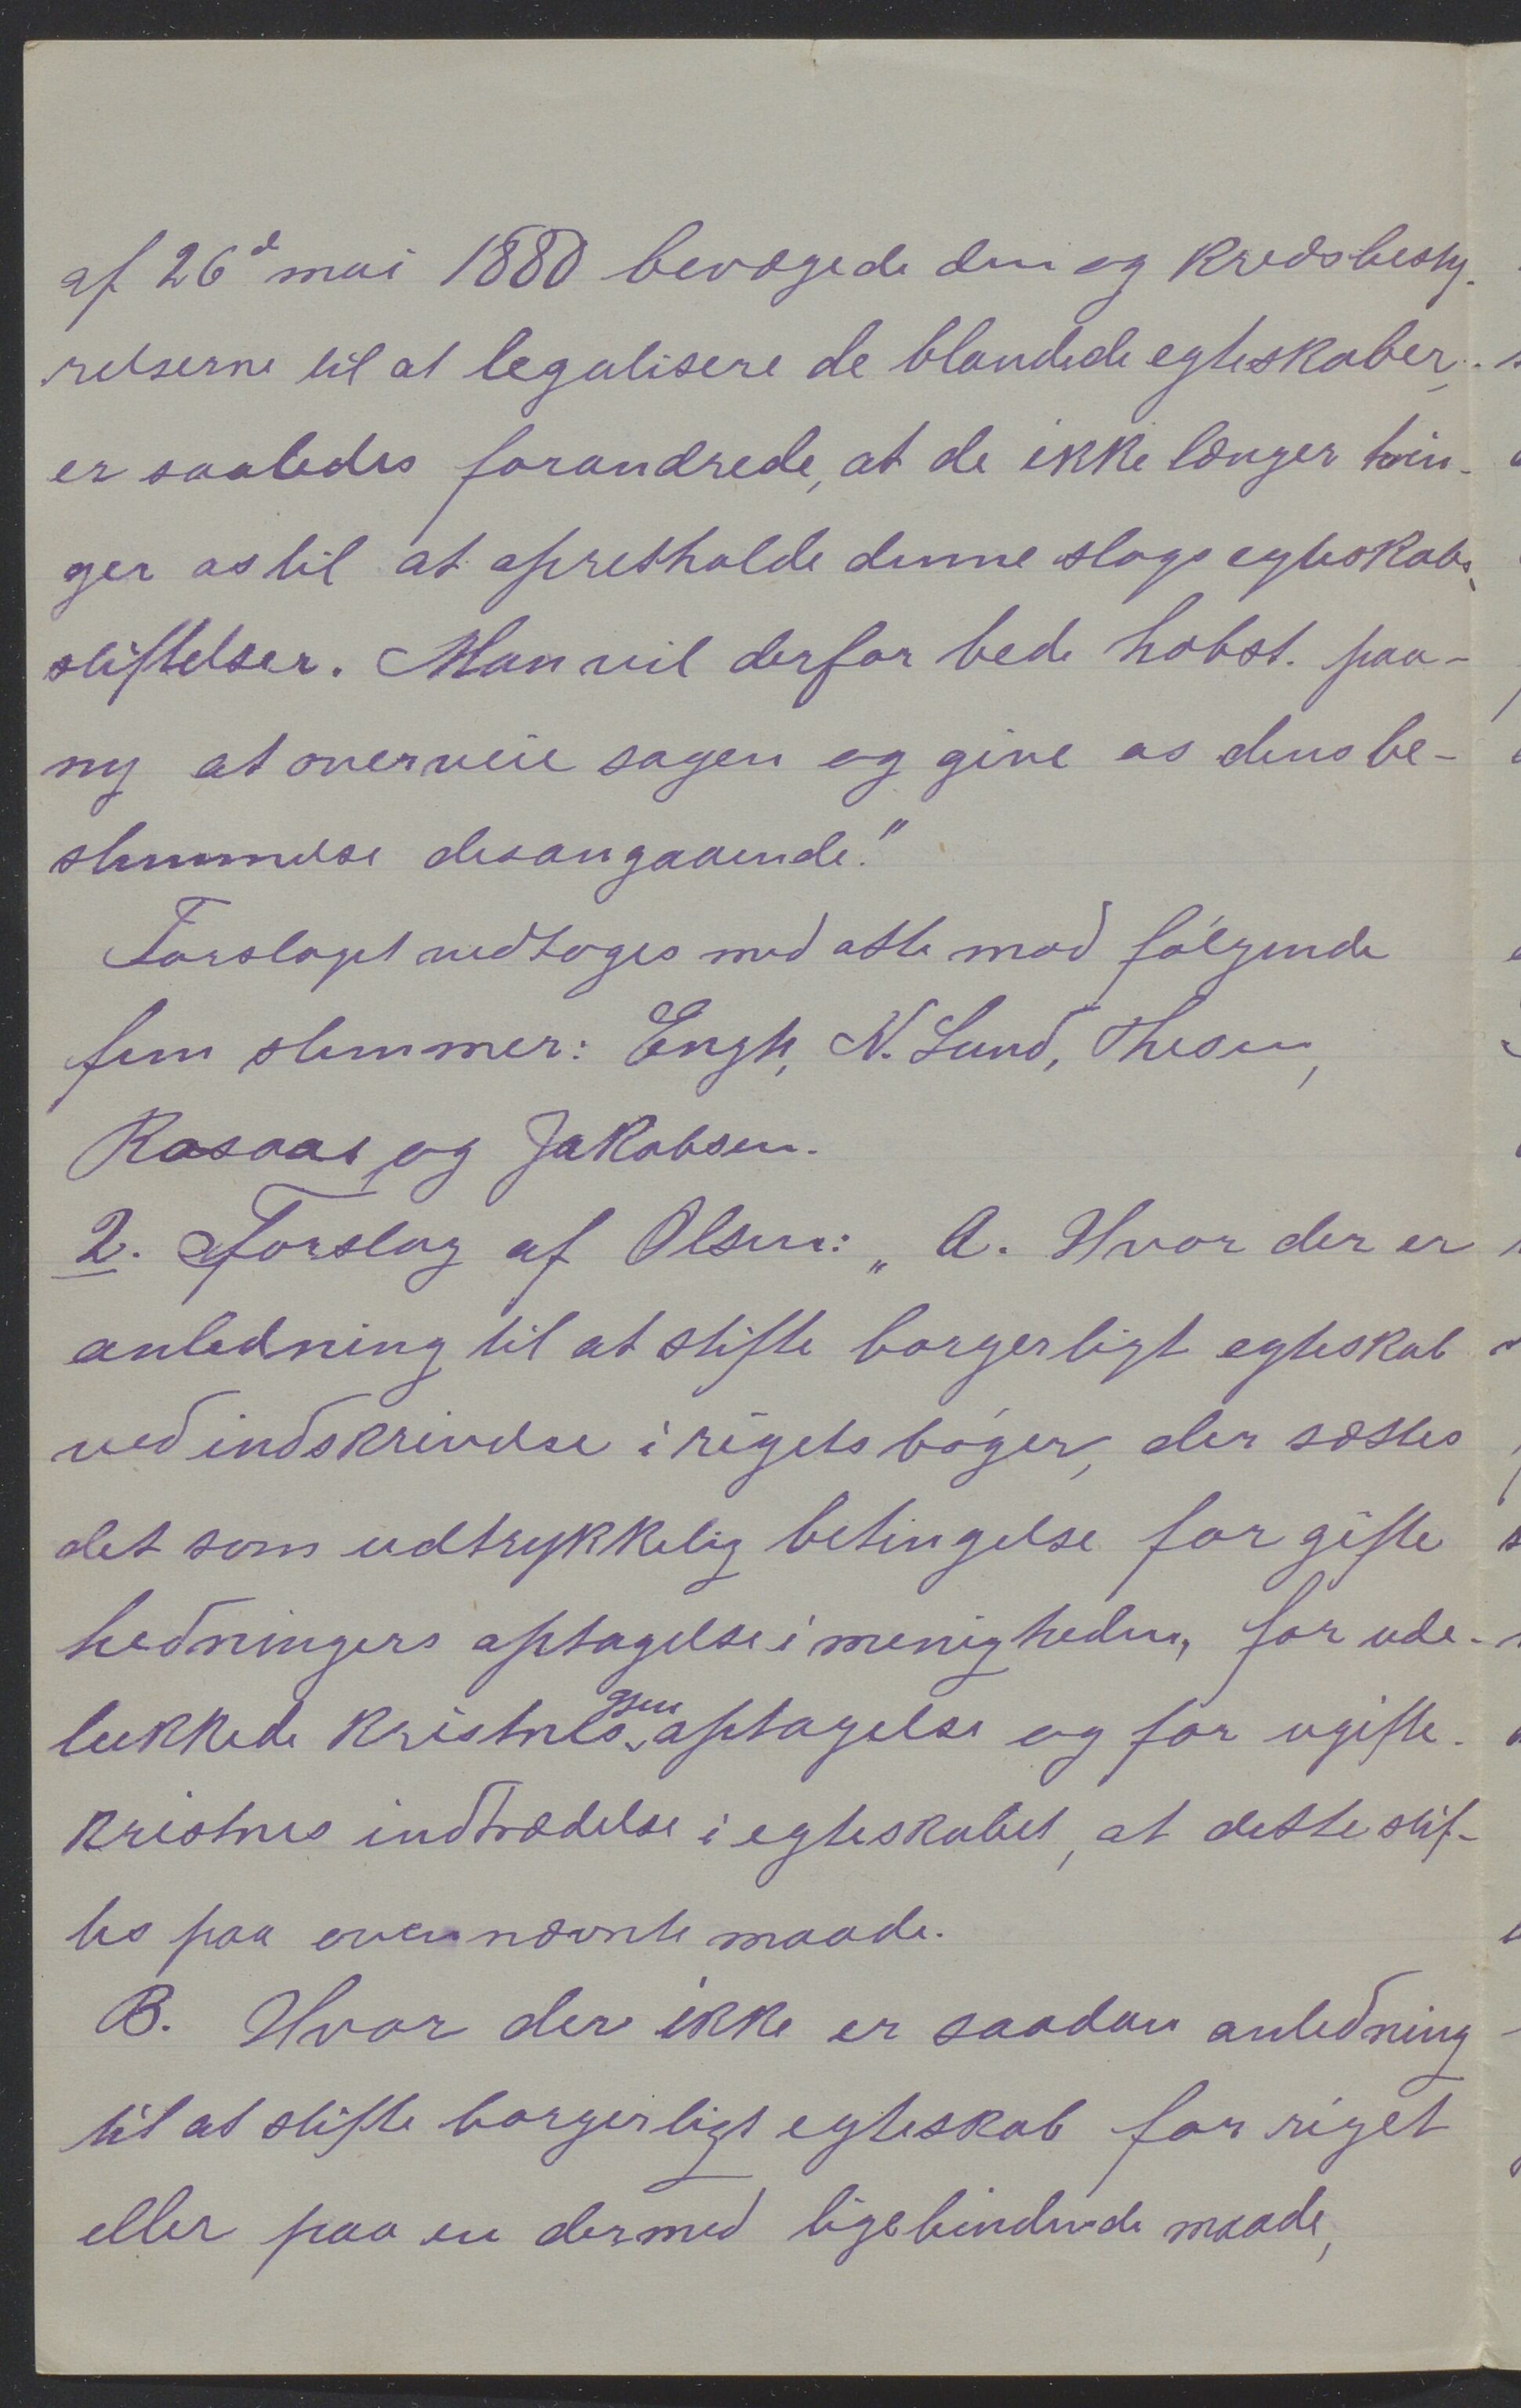 af 26d mai 1880 bevægede den og kredsbesty-
relserne til at legalisere de blandede egteskaber,
er saaledes forandrede, at de ikke længer tvin-
ger os til at opretholde denne slags egteskabs
stiftelser. Man vil derfor bede hobst. paa-
ny at overveie sagen og give os dens be-
stemmelse desangaaende."
Forslaget vedtoges med otte mod følgende
fem stemmer: Engh, N. Lund, Thesen,
Rosaas og Jakobsen.
2. Forslag af Olsen: „A. Hvor der er
anledning til at stifte borgerligt egteskab
ved indskrivelse i rigets bøger, der sættes
det som udtrykkelig betingelse for gifte
hedningers optagelse i menigheden, for ude-
lukkede kristnes gjen optagelse og for ugifte
kristnes indtrædelse i egteskabet, at dette stif-
tes paa ovennævnte maade.
B. Hvor der ikke er saadan anledning
til at stifte borgerligt egteskab for riget
eller paa en dermed ligebindende maade,